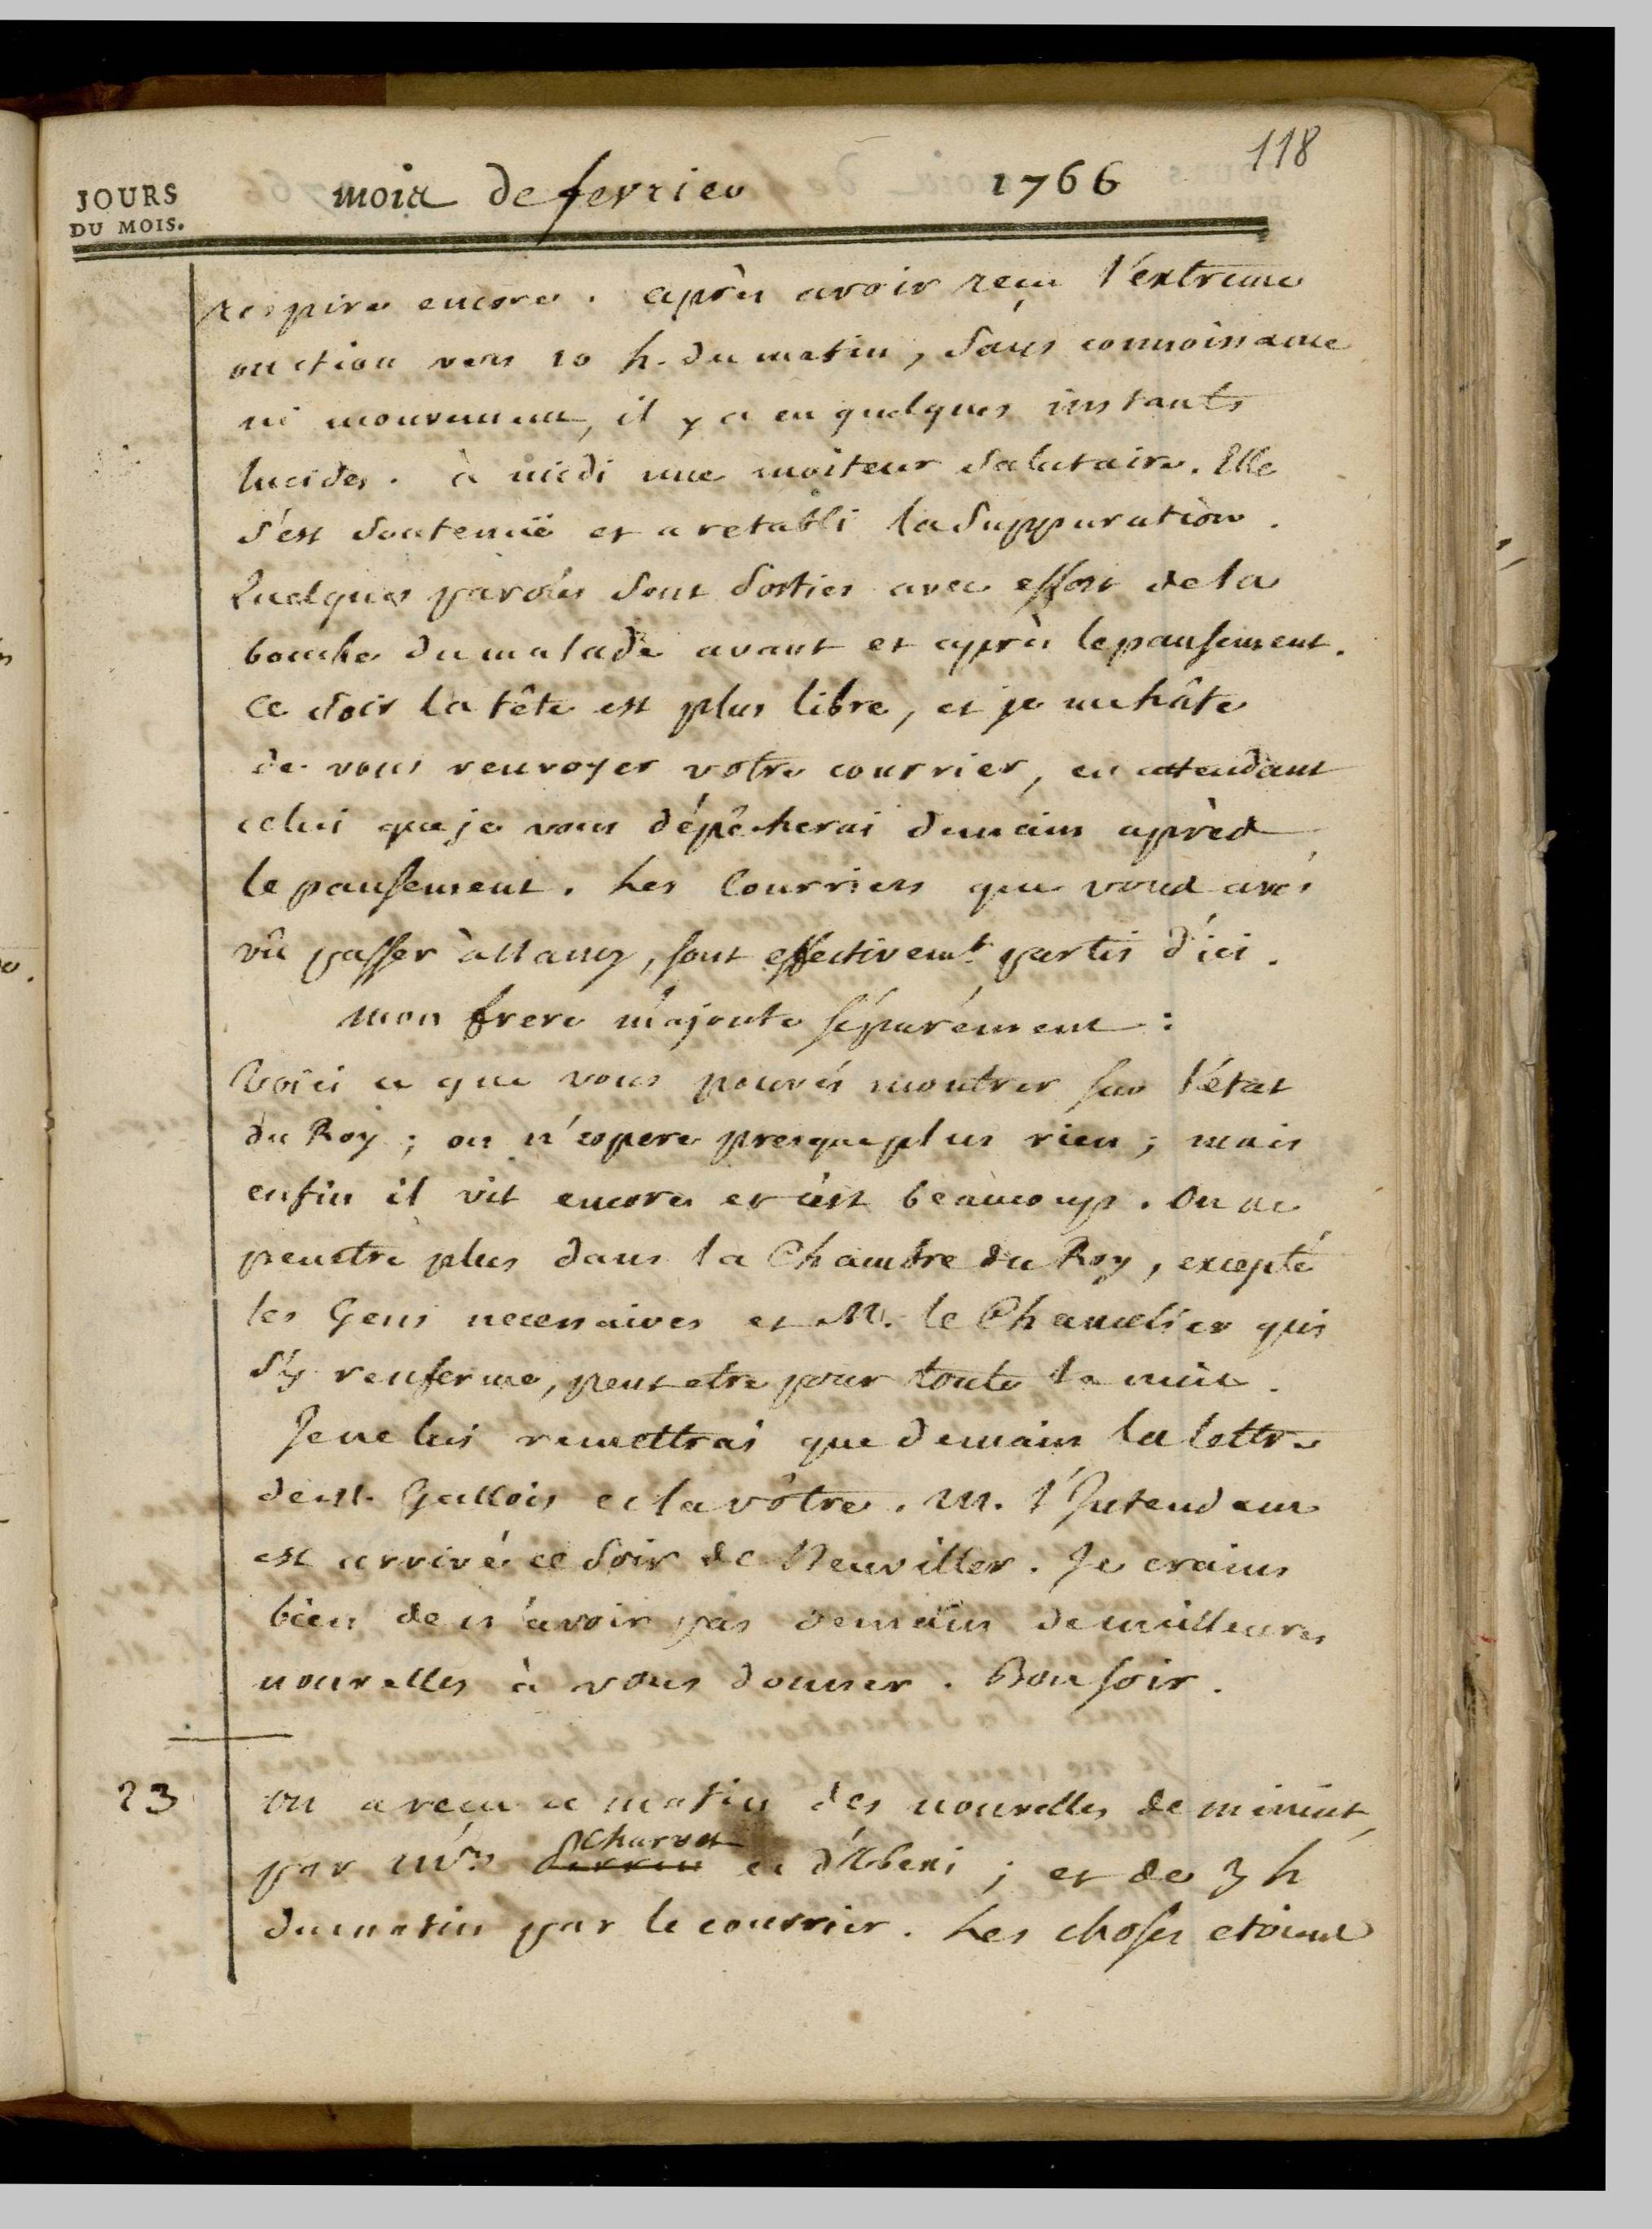 118
JOURS
DU MOIS.
mois de fevrier 1766
respire encore. après avoir reçu l'extreme
onction vers 10 h. du matin, sans connoissance
ni mouvement, il y a eu quelques instants
lucides. à midi une moiteur salutaire. Elle
s'est soutenuë et a retabli la suppuration.
Quelques paroles sont sorties avec effort de la
bouche du malade avant et après le pansement.
Ce soir la tête est plus libre, et je me hâte
de vous renvoyer votre courrier, en attendant
celui que je vous dépêcherai demain après
le pansement. Les Courriers que vous avés
vû passer à Nancy, sont effectivemt. partis d'ici.
mon frere m'ajoute séparément :
Voici ce que vous pouvés montrer sur l'état
du Roy ; on n'espere presque plus rien ; mais
enfin il vit encore et c'est beaucoup. On ne
penetre plus dans la Chambre du Roy, excepté
les Gens necessaires et M. le Chancelier qui
s'y renferme, peut etre pour toute la nuit.
Je ne lui remettrai que demain la lettre
de M. Gallois et la vôtre. M. l'Intendant
est arrivé ce soir de Neuviller. Je crains
bien de n'avoir pas demain de meilleures
nouvelles à vous donner. Bon soir.
23 on a reçu ce matin des nouvelles de minuit
par Mrs Charvet et d'Alberi ; et de 3 h
du matin par le courrier. Les choses etoient